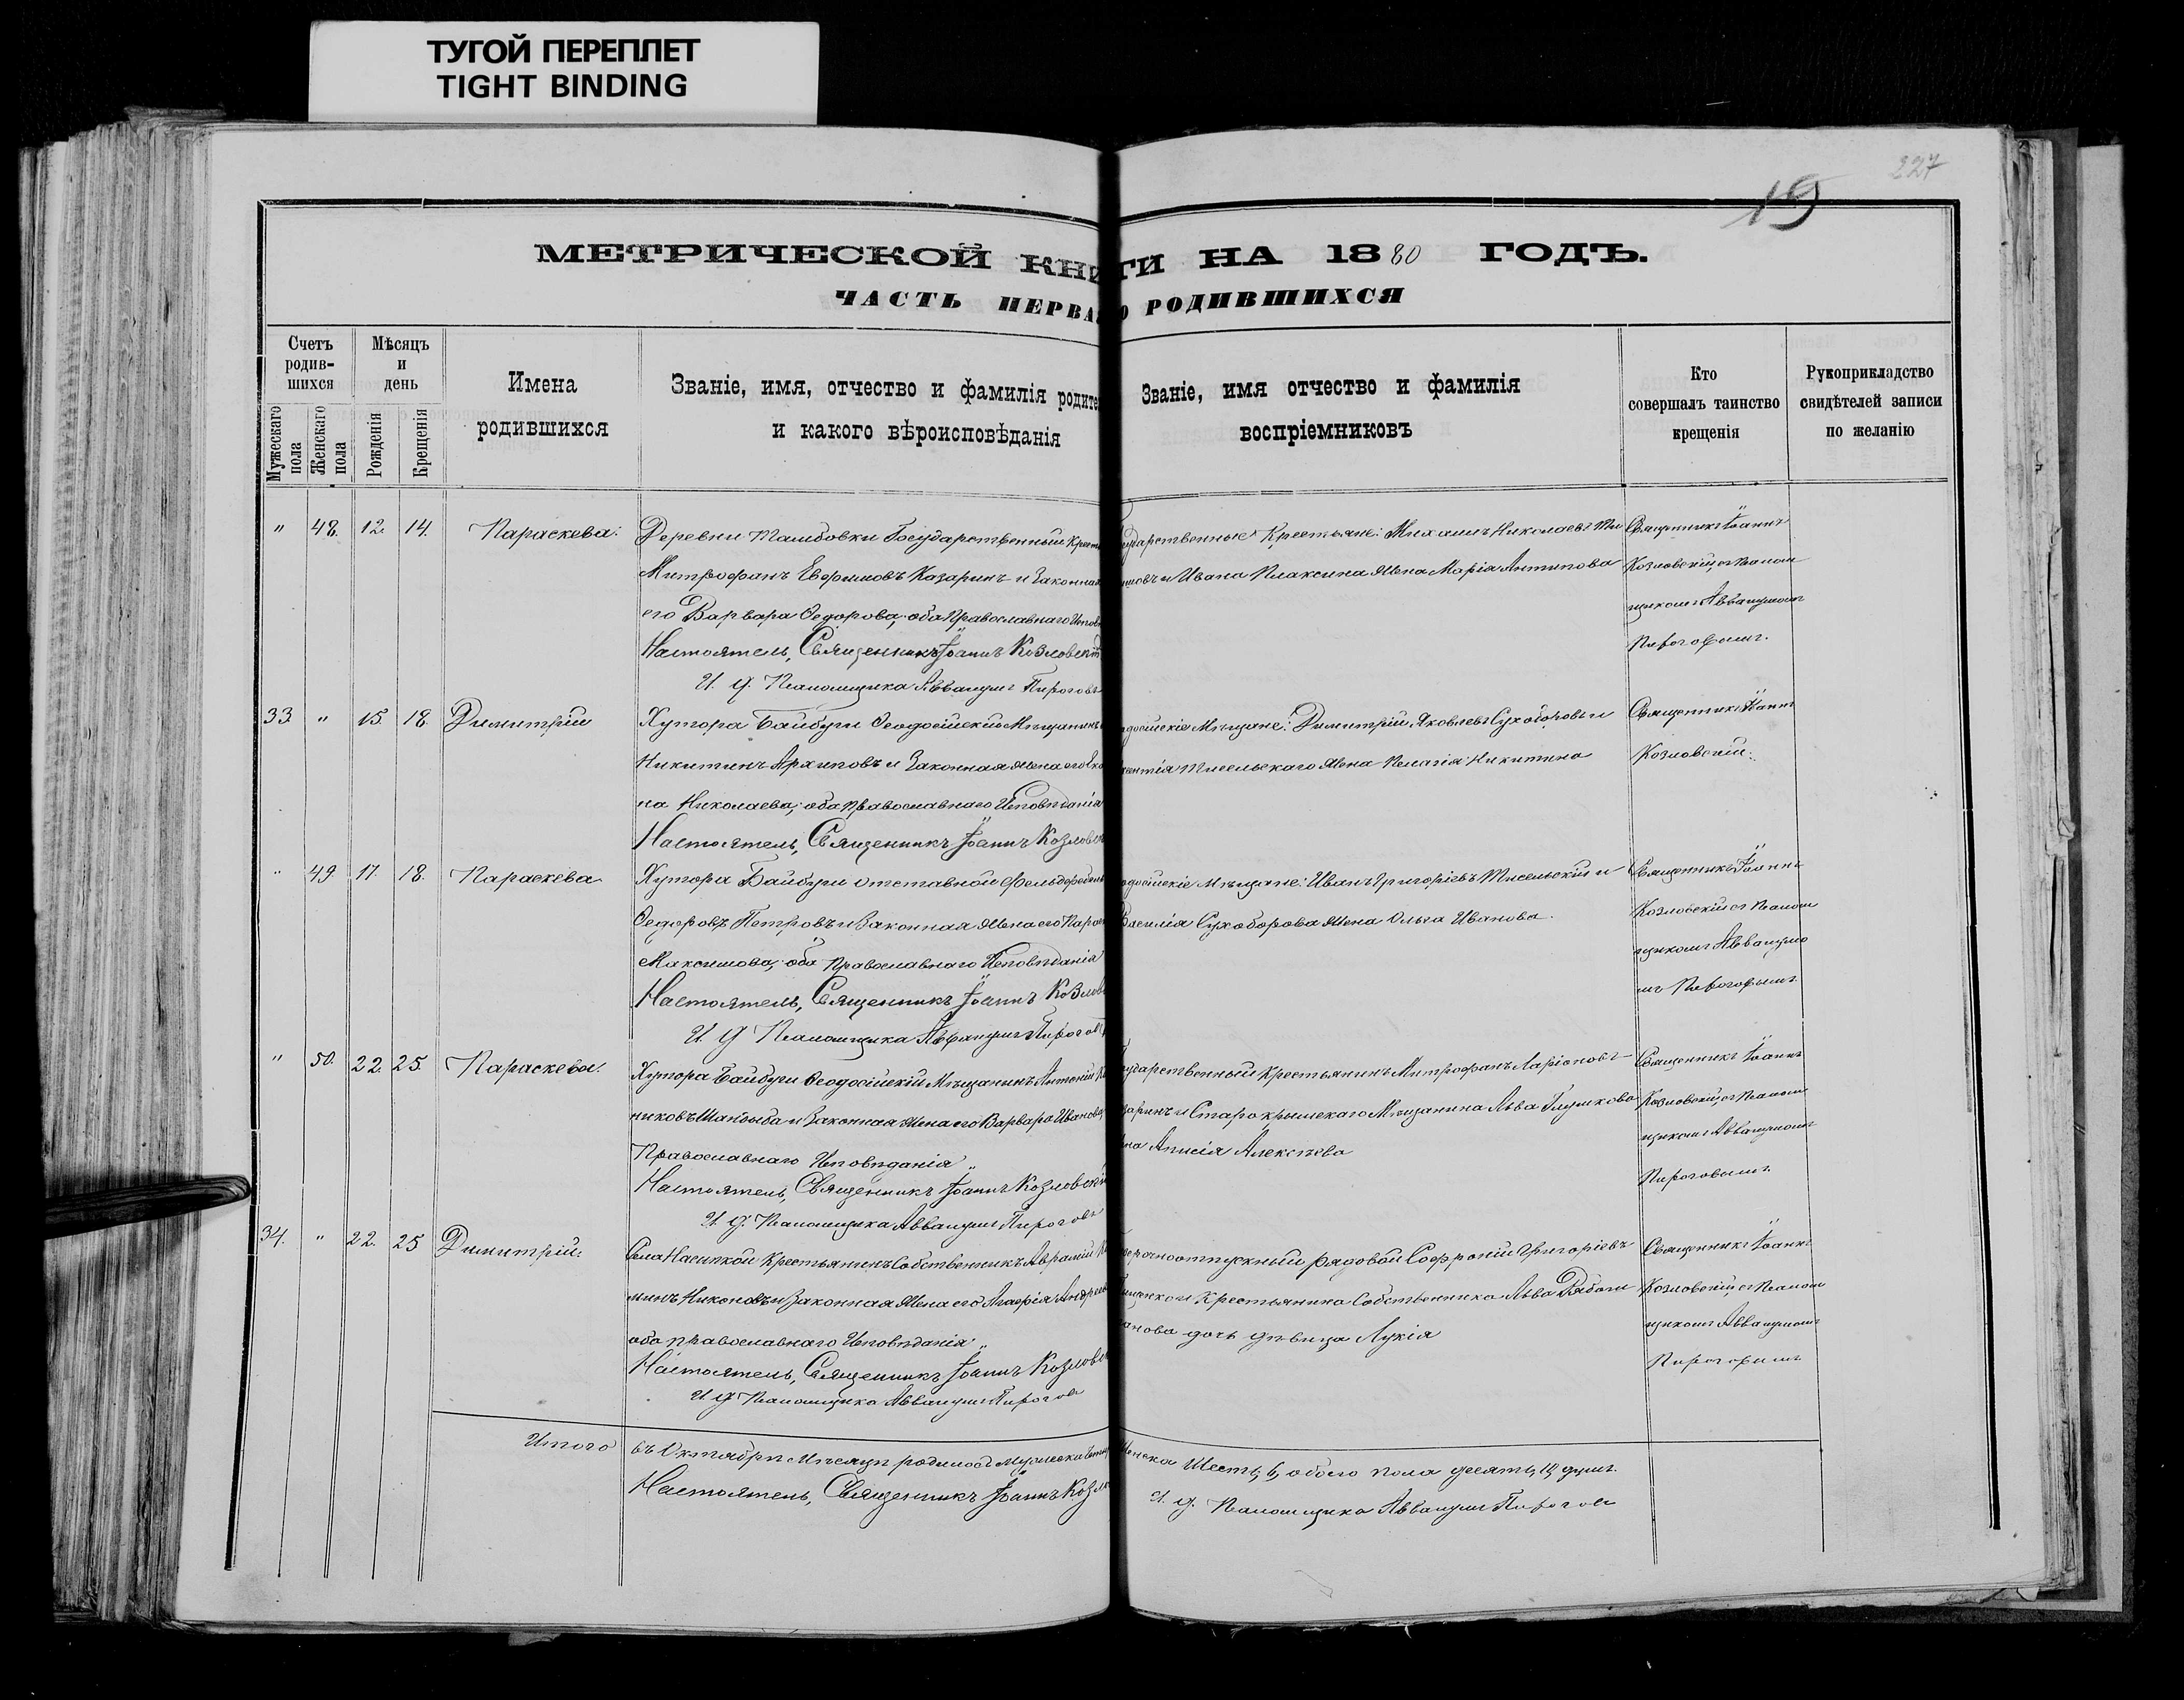 ТУГОЙ ПЕРЕПЛЕТ
TIGHT BINDING
227
19
МЕТРИЧЕСКОЙ КНИГИ НА 1880 ГОДЪ.
ЧАСТЬ ПЕРВА О РОДИВШИХСЯ
Счетъ родившихся
Мужескаго пола
Женскаго пола
Мѣсяцъ и день
Рожденія
Крещенія
Имена родившихся
Званіе, имя, отчество и фамилія родите
и какого вѣроисповѣданія
Званіе, имя отчество и фамилія
воспріемниковъ
Кто
совершалъ таинство
крещенія
Рукоприкладство
свидѣтелей записи
по желанію
" 48. 12. 14. Параскева.
Деревни Тамбовки Государственный Крест
Митрофанъ Евфимовъ Казаринъ и Законная
его Варвара Ѳедорова, оба Православнаго Испов
Настоятель, Священникъ Іоаннъ Козловскій
И. д. Псаломщика Аввакумъ Пироговъ
ударственные Крестьяне: Михаилъ Николаевъ
и Ивана Плаксина жена Марія Антипова
Священникъ Іоаннъ
Козловскій съ Псалом
щикомъ Аввакумомъ
Пироговымъ.
33. " 15. 18. Димитрій
Хутора Байбуги Ѳеодосійскій Мѣщанинъ
Никитинъ Архиповъ и Законная жена его
на Николаева, оба Православнаго Исповѣданія
Настоятель, Священникъ Іоаннъ Козловск
одосійскіе Мѣщане: Димитрій Яковлевъ Сухоборовъ и
Тисельскаго жена Пелагія Никитина
Священникъ Іоаннъ
Козловскій.
" 49. 17. 18. Параскева
Хутора Байбуги отставной Фельдфебель
Ѳедоровъ Петровъ и Законная жена его Парас
Максимова, оба Православнаго Исповѣданія
Настоятель, Священникъ Іоаннъ Козлов
И. д Псаломщика Аввакумъ Пирогов
одосійскіе Мѣщане: Иванъ Григорьевъ Тисельскій и
Василія Сухоборова жена Ольга Иванова.
Священникъ Іоаннъ
Козловскій съ Псалом
щикомъ Аввакумо
мъ Пироговымъ
" 50. 22. 25. Параскева.
Хутора Байбуги Ѳеодосійскій Мѣщанинъ Антоній
никовъ Шандыба и Законная жена его Варвара Иванова,
Православнаго Исповѣданія
Настоятель, Священникъ Іоаннъ Козловскі
И. д. Псаломщика Аввакумъ Пироговъ
ударственный Крестьянинъ Митрофанъ Ларіоновъ
заринъ и Старокрымскаго Мѣщанина Льва Глушкова
на Анисія Алексѣева
Священникъ Іоаннъ
Козловскій съ Псалом
щикомъ Аввакумомъ
Пироговымъ
34. " 22. 25 Димитрій.
Села Насыпкой Крестьянинъ Собственникъ Авраамій
минъ Никоновъ и Законная жена его Агафія Андрее
оба православнаго Исповѣданія
Настоятель, Священникъ Іоаннъ Козлов
И д Псаломщика Аввакумъ Пирогов
срочноотпускный рядовой Софроній Григорьевъ
Крестьянина Собственника Льва
анова дочь дѣвица Лукія
Священникъ Іоаннъ
Козловскій съ Псалом
щикомъ Аввакумомъ
Пироговымъ
Итого въ Октябрѣ Мѣсяцѣ родилось Мужеска
Женска Шесть, 6, обоего пола десять, 10, душъ.
Настоятель, Священникъ Іоаннъ Козл
И. д. Псаломщика Аввакумъ Пирогов